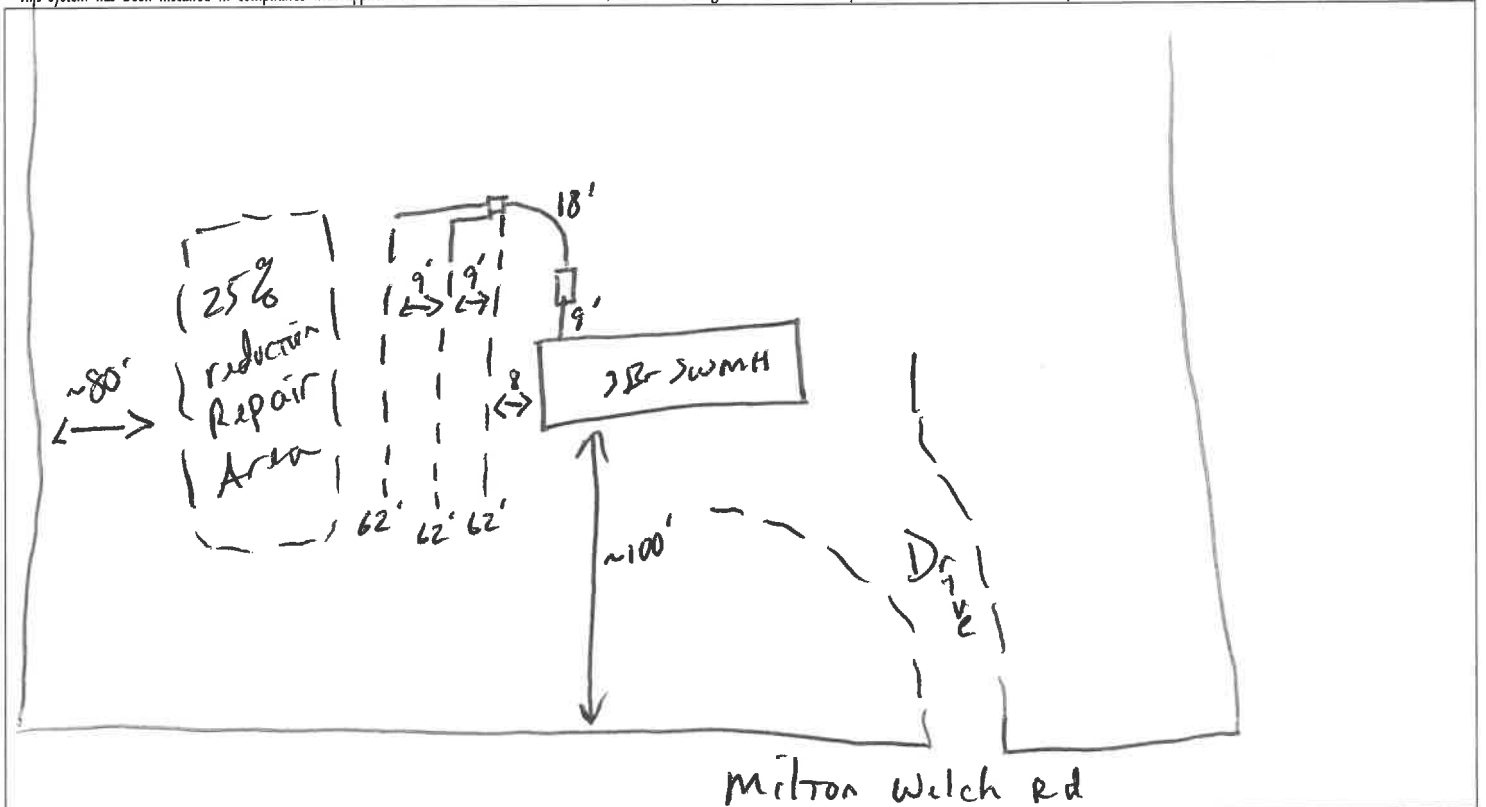 18'
9'
9'
9'
25%
reduction
Repair
Area
~80'
8
3Br SWMH
62'
62'
62'
~100'
Drive
Milton Welch Rd